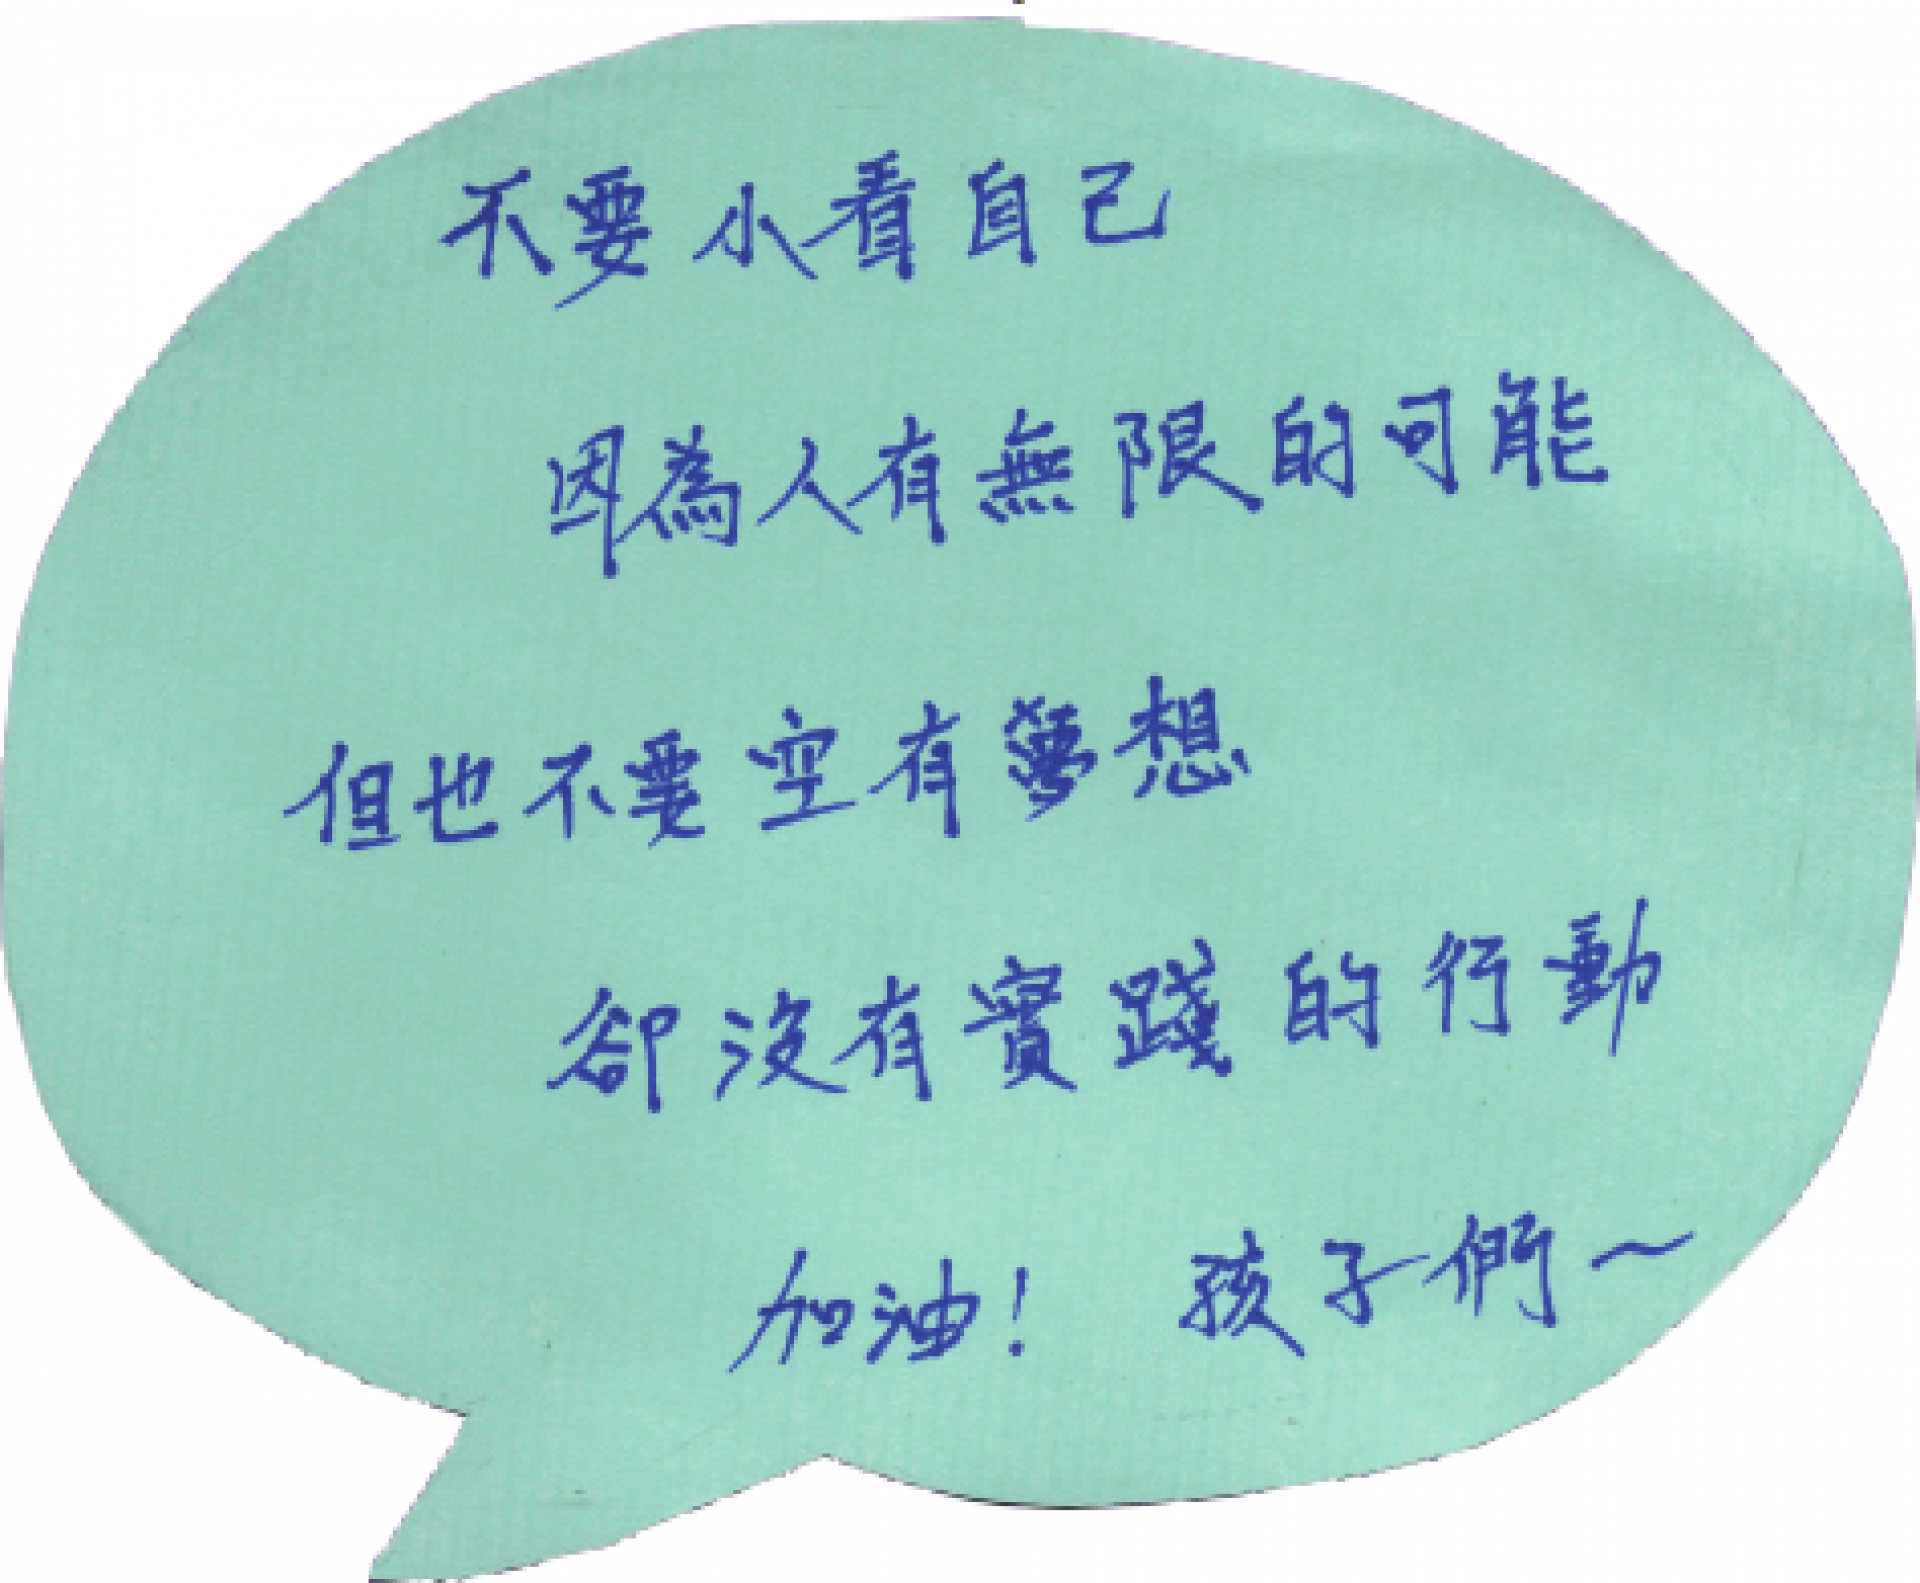 不要小看自己
因為人有無限的可能
但也不要空有夢想
卻沒有實踐的行動
加油！ 孩子們～